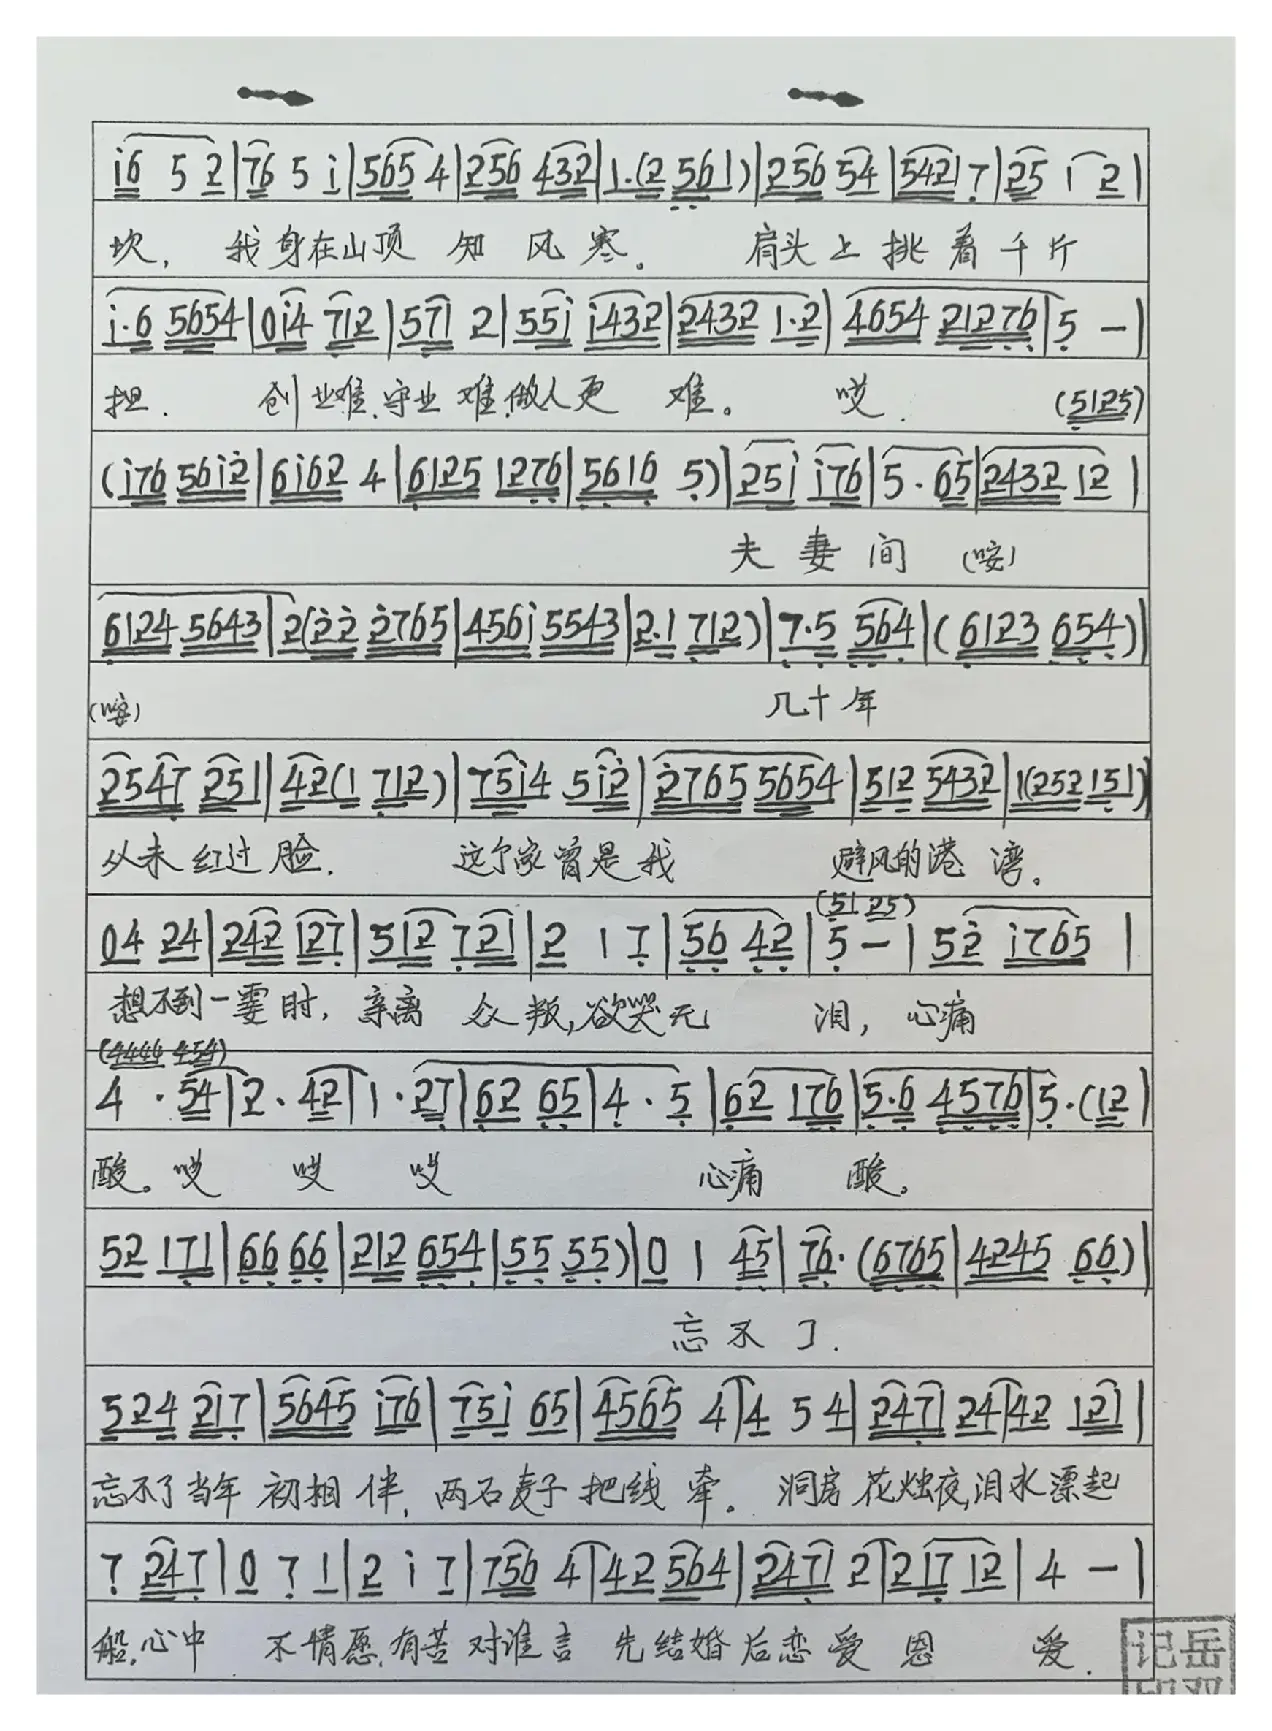 i6 5 2|76 5 i|565 4|256 432|1·(2 561)|256 54|5421 7|25 1 2|
坎，我身在山顶 知 风 寒． 肩头上 挑 着 千 斤
i·6 5654|0i4 712|571 2|55i i432|2432 1·2|4654 21276|5 —|
担． 创业难、守业 难、做人更 难。 哎． (5125)
(i76 56i2|6i62 4|6125 1276|5616 5)|25i i76|5·65|2432 12|
夫 妻 间 (咹)
6124 5643|2(22 2765|456i 5543|2·1 712)|7·5 564|(6123 654)|
(咹) 几十年
2547 251|42(1 712)|75i4 5i2|2765 5654|512 5432|1(252 151)|
从未红过脸． 这个家曾是我 避风的港 湾。
(51 25)
04 24|242 127|512 721|2 1 7|56 42|5 —|52 i765|
想不到一霎时，亲离 众叛，欲哭无 泪，心痛
(4444 454)
4·54|2·42|1·27|62 65|4·5|62 176|5·6 4576|5·(12|
酸。哎 哎 哎 心痛 酸。
52 171|66 66|212 654|55 55)|0 1 45|76·(6765|4245 66)|
忘 不 了．
524 217|5645 i76|75i 65|4565 4|4 54|2471 24|42 121|
忘不了当年 初相伴，两石麦子把线 牵。 洞房花烛夜，泪水漂起
7 247|0 7 1|2 i 7|756 4|42 564|2471 2|217 12|4 —|
船，心中 不情愿、有苦对谁言 先结婚后恋爱 恩 爱．
记岳